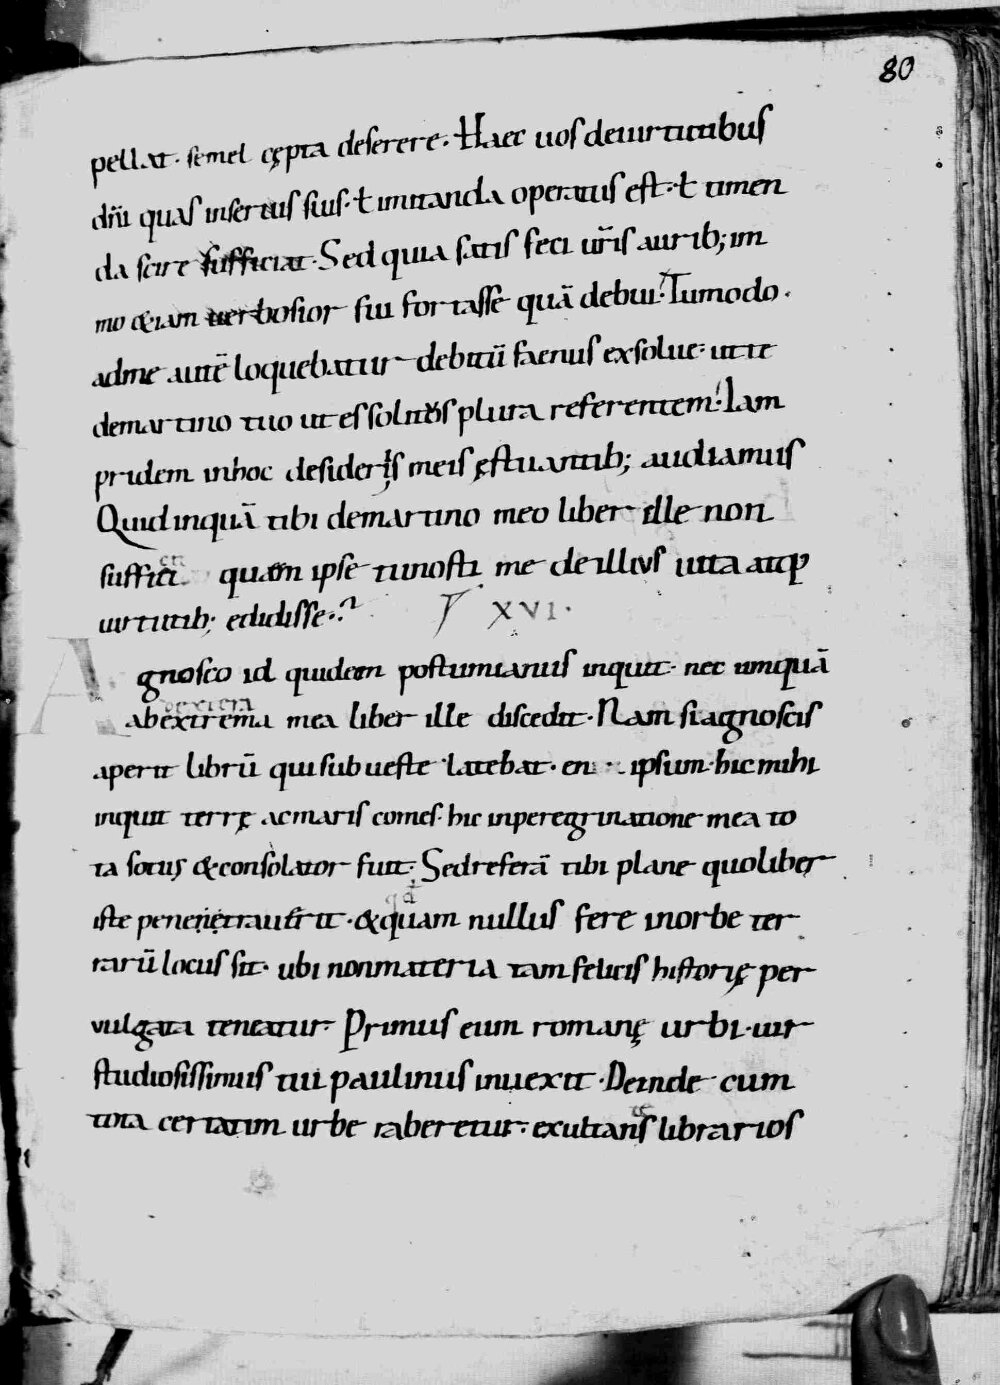 80
pellat. semel cępta deserere. Haec uos deuirtutibus
dn̄i quas inseruis suis. ł imitanda operatus est. ł timen
da scire sufficiat. Sed quia satis feci uris̄ aurib; im
mo &iam uerbosior fui fortasse quā debui. Tumodo.
adme autē loquebatur debitū faenus exsolue. ut te
demartino tuo ut es solitus plura referentem. Iam
pridem inhoc desideriis meis ęstuantib; audiamus
Quid inquā tibi demartino meo liber ille non
suffici quam ipse tu nosti me de illius uita atq
uirtutib; edidisse.
XVI.
Agnosco id quidem postumianus inquit. nec umquā
ab extrema mea liber ille discedit. Nam si agnoscis
aperit librū qui sub ueste latebat. en ipsum. hic mihi
inquit terrę ac maris comes. hic in peregrinatione mea to
ta socius &consolator fuit. Sed referā tibi plane quo liber
iste penenetrauerit. &quam nullus fere inorbe ter
rarū locus sit. ubi non materia tam felicis historię per
vulgata teneatur. Primus eum romanę urbi. uir
studiosissimus tui paulinus inuexit. Deinde cum
tota certatim urbe raberetur. exultans librarios